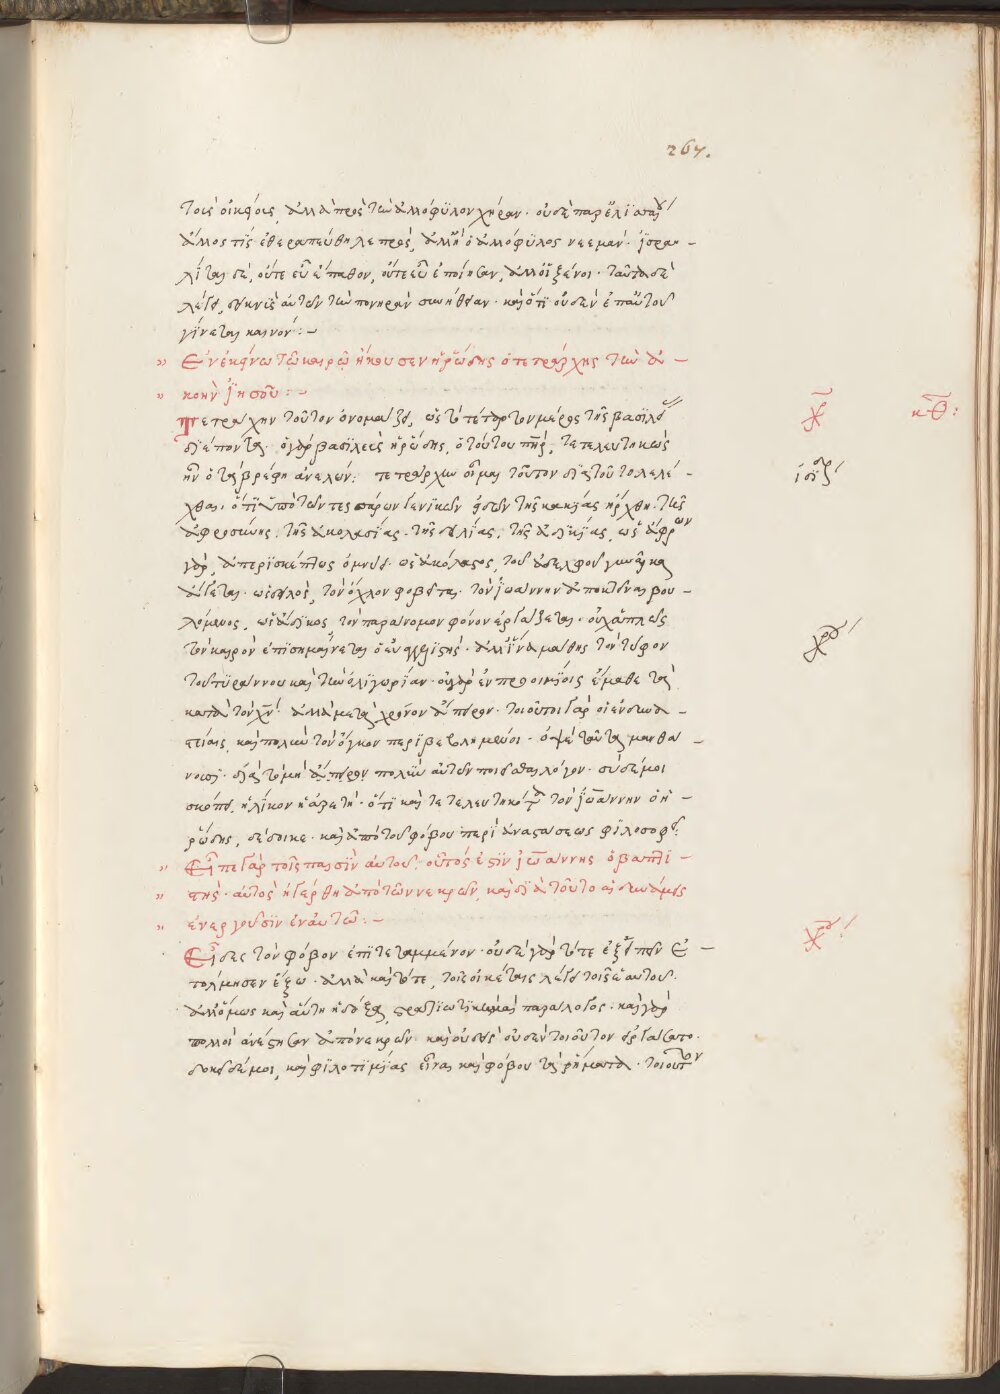 267.
τοῖς οἰκείοις, ἀλλὰ πρὸς τὴν ἀλλόφυλον χήραν· οὐδὲ παρ' ἐλισσαίου
ἄλλος τίς ἐθεραπεύθη λεπρὸς, ἀλλ' ἢ ὁ ἀλλόφυλος νεεμάν· ἰσραη-
λῖται δὲ, οὔτε εὖ ἔπαθον, οὔτε εὖ ἐποίησαν, ἀλλ' οἱ ξένοι· ταῦτα δὲ
λέγει, δεικνὺς αὐτῶν τὴν πονηρὰν συνήθειαν· καὶ ὅτι οὐδὲν ἐπ' αὐτοῦ
γίνεται καινόν:~
" Ἐν ἐκείνω τῶ καιρῶ ἤκουσεν ἡρώδης ὁ τετράρχης τὴν ἀ-
" κοὴν ἰησοῦ:~
Τετράρχην τοῦτον ὀνομάζει, ὡς τὸ τέταρτον μέρος τῆς βασιλείας
διέποντα· ὁ γὰρ βασιλεὺς ἡρώδης, ὁ τούτου πηρ, τετελευτηκὼς
ἦν ὁ τὰ βρέφη ἀνελών: τετράρχην οἶμαι τοῦτον διὰ τοῦτο λελέ-
χθαι, ὅτι ὑπὸ τῶν τεσσάρων γενικῶν εἰδῶν τῆς κακίας ἤρχθη· τῆς
ἀφροσύνης· τῆς ἀκολασίας· τῆς δειλίας· τῆς ἀδικίας, ὡς ἄφρων
γὰρ, ἀπερισκέπτως ὀμνύει· ὡς ἀκόλαστος, τοῦ ἀδελφοῦ γυναῖκα
ἄγεται· ὡς δειλὸς, τὸν ὄχλον φοβεῖται· τὸν ἰωάννην ἀποκτεῖναι βου-
λόμενος, ὡς ἄδικος, τὸν παράνομον φόνον ἐργάζεται· οὐχ ἁπλῶς
τὸν καιρὸν ἐπισημαίνεται ὁ εὐαγγελιστής· ἀλλ' ἵνα μάθης τὸν τύφον
τοῦ τυράννου καὶ τὴν ὀλιγωρίαν· οὐ γὰρ ἐν προοιμίοις ἔμαθε τὰ
κατὰ τὸν χν· ἀλλὰ μετὰ χρόνον ἄπειρον· τοιοῦτοι γὰρ οἱ ἐν δυνα-
στείαις, καὶ πολὺν τὸν ὄγκον περιβεβλημένοι· ὀψὲ ταῦτα μανθά-
νουσι· διὰ τὸ μὴ ἄπειρον πολὺν αὐτῶν ποιεῖσθαι λόγον· σὺ δέ μοι
σκόπει, ἡλίκον ἡ ἀρετή· ὅτι καὶ τετελευτηκότα τὸν ἰωάννην ὁ ἡ-
ρώδης, δέδοικε· καὶ ἀπὸ τοῦ φόβου περὶ ἀναστάσεως φιλοσοφεῖ:
" Εἶπε γὰρ τοῖς παισὶν αὐτοῦ· οὗτός ἐστιν ἰωάννης ὁ βαπτι-
" στής· αὐτὸς ἠγέρθη ἀπὸ τῶν νεκρῶν, καὶ διὰ τοῦτο αἱ δυνάμεις
" ἐνεργοῦσιν ἐν αὐτῶ:~
Εἶδες τὸν φόβον ἐπιτεταμμένον· οὐδὲ γὰρ τότε ἐξειπεῖν ἐ-
τόλμησεν ἔξω· ἀλλὰ καὶ τότε, τοῖς οἰκέταις λέγει τοῖς ἑαυτοῦ·
ἀλλ' ὅμως καὶ αὕτη ἡ δόξα, στρατιωτικὴ καὶ παράλογος· καὶ γὰρ
πολλοὶ ἀνέστησαν ἀπὸ νεκρῶν· καὶ οὐδεὶς οὐδὲν τοιοῦτον εἰργάσατο·
δοκεῖ δέ μοι, καὶ φιλοτιμίας εἶναι καὶ φόβου τὰ ῥήματα· τοιοῦτον
κθ: